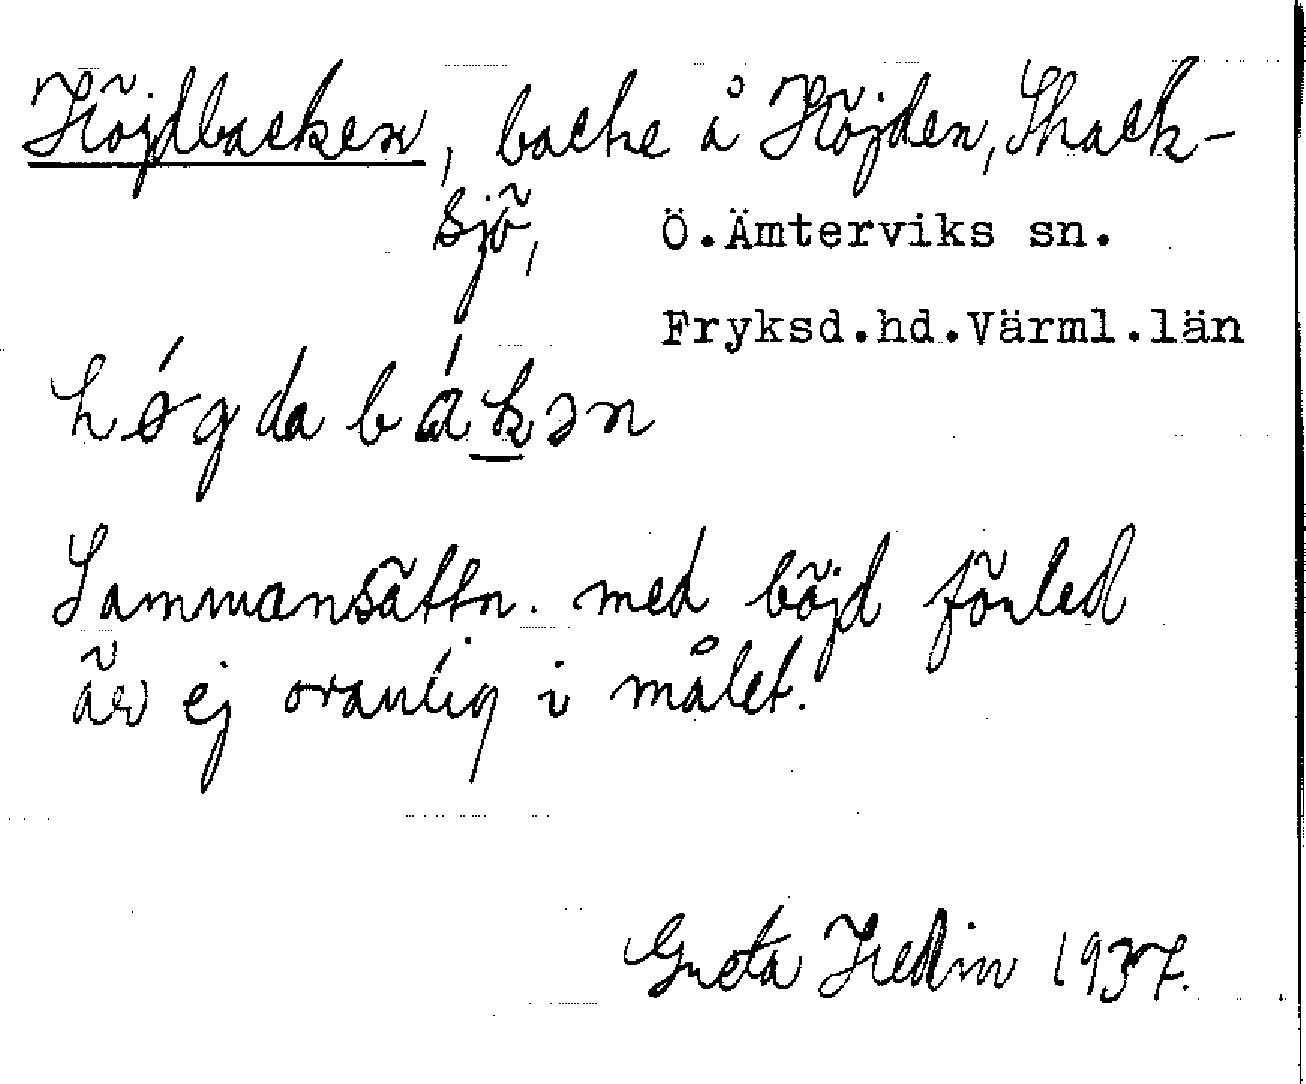 Höjdbacken, backe å Höjden, Skack-
sjö, Ö.Ämterviks sn.
Fryksd.hd.Värml.län
hǿgdabákən
Sammansättn. med böjd förled
är ej ovanlig i målet.
Greta Hedin 1937.